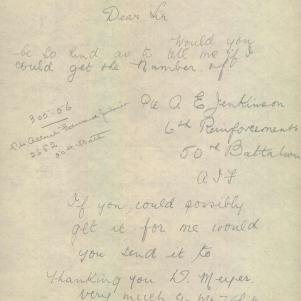 Dear Sir
Would you
be so kind as to tell me if I
could get the Number of
Pte A E Jenkinson
6th Reinforcements
50th Battalion
A I F
305-06
2652
50th Batt
If you could possibly
get it for me would
you send it to
Thanking you D. Meyer
very much